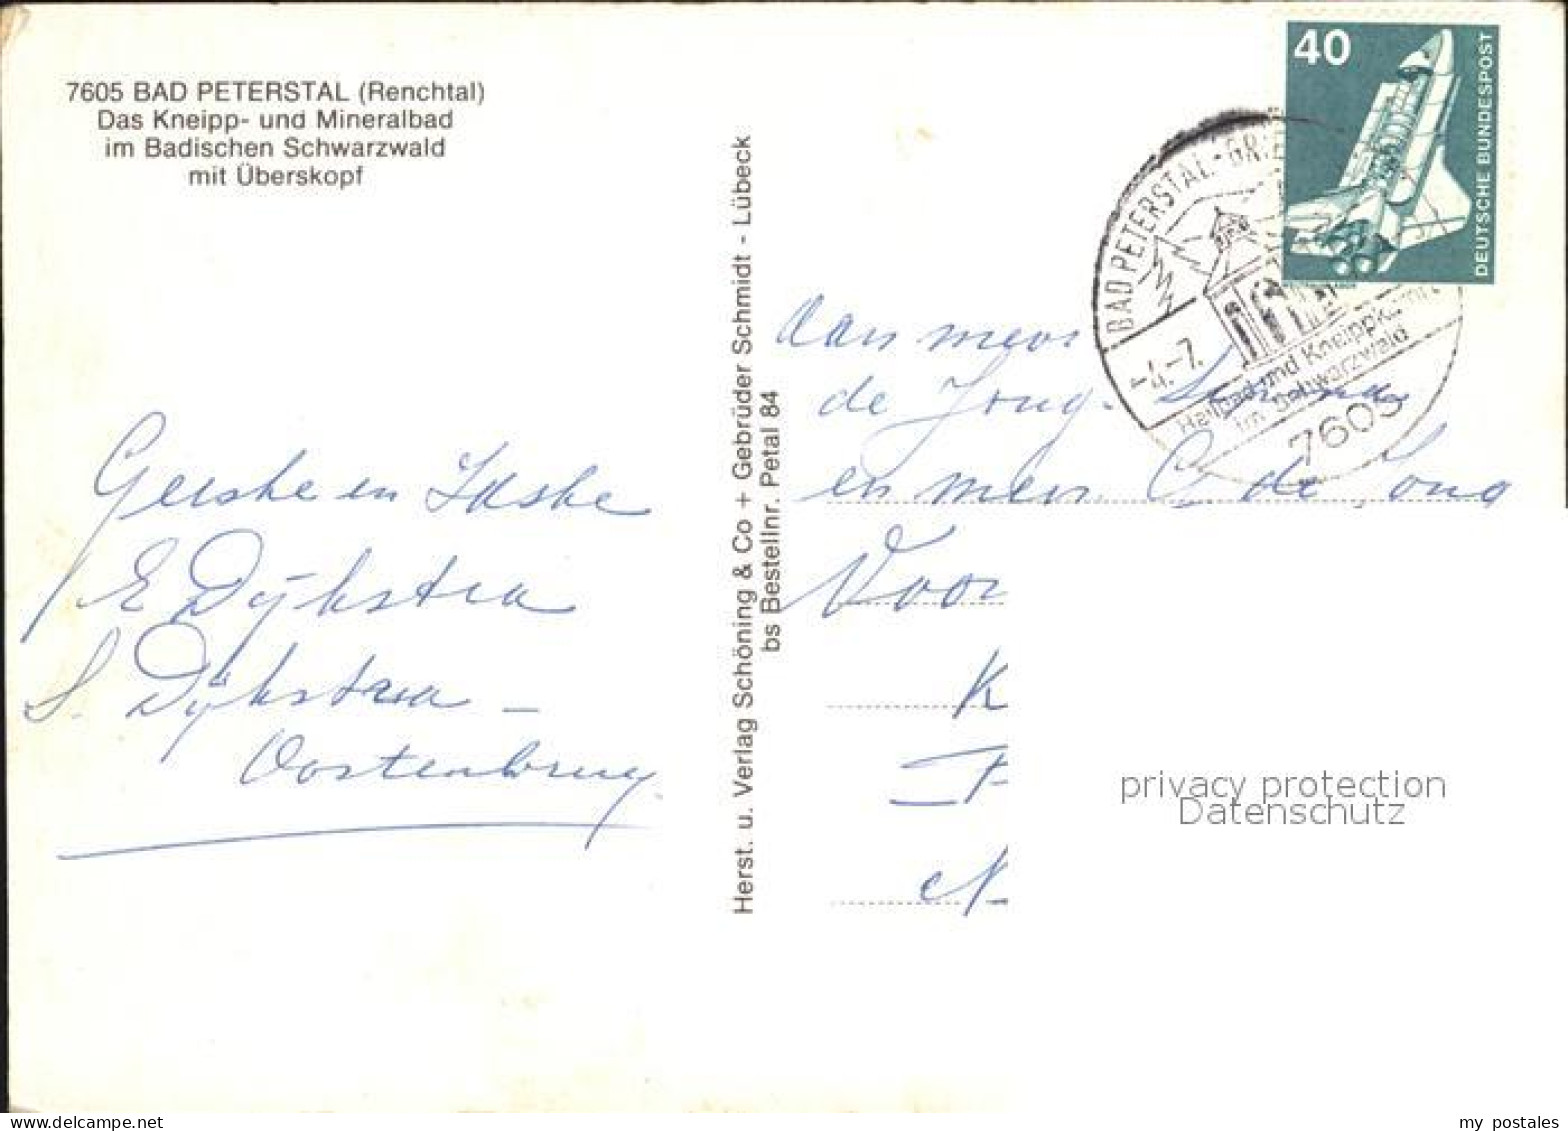 7605 BAD PETERSTAL (Renchtal)
Das Kneipp- und Mineralbad
im Badischen Schwarzwald
mit Überskopf
en
E Dijkstra
S. Dijkstra –
Oostenbrug.
Herst. u. Verlag Schöning & Co + Gebrüder Schmidt - Lübeck
bs Bestellnr. Petal 84
40
DEUTSCHE BUNDESPOST
BAD PETERSTAL-GRIE
-4.-7.
Heilbad und Kneippkurort
im Schwarzwald
7605
Aan mevr
de Jong-
en mevr. C de Jong
Voor
K
F
N
privacy protection
Datenschutz
my postales